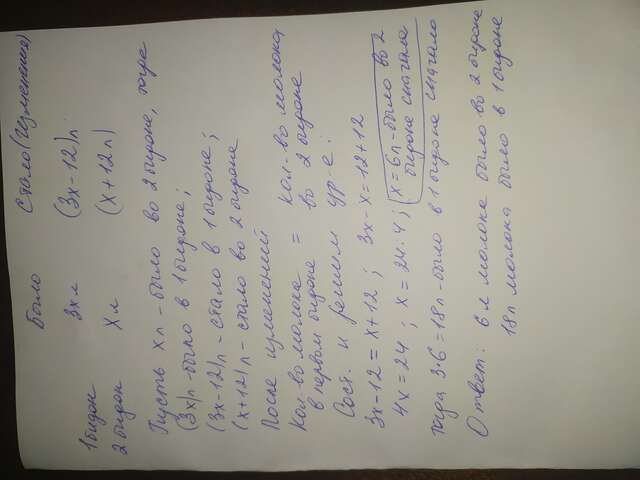 Было Стало (изменения)
1 бидон 3х л (3х-12)л
2 бидон х л (х+12л)
Пусть х л - было во 2 бидоне, тогда
(3х)л - было в 1 бидоне;
(3х-12)л - стало в 1 бидоне;
(х+12)л - стало во 2 бидоне
После изменений
кол-во молока = кол-во молока
в первом бидоне во 2 бидоне
Сост. и решим ур-е:
3х-12=х+12; 3х-х=12+12
4х=24; х=24:4; х=6л-было во 2
бидоне сначала
тогда 3·6=18л-было в 1 бидоне сначало
Ответ: 6 л молока было во 2 бидоне
18л молока было в 1 бидоне